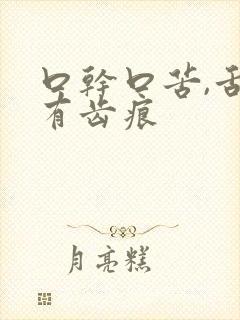 口幹口苦,舌
有齿痕
月亮糕